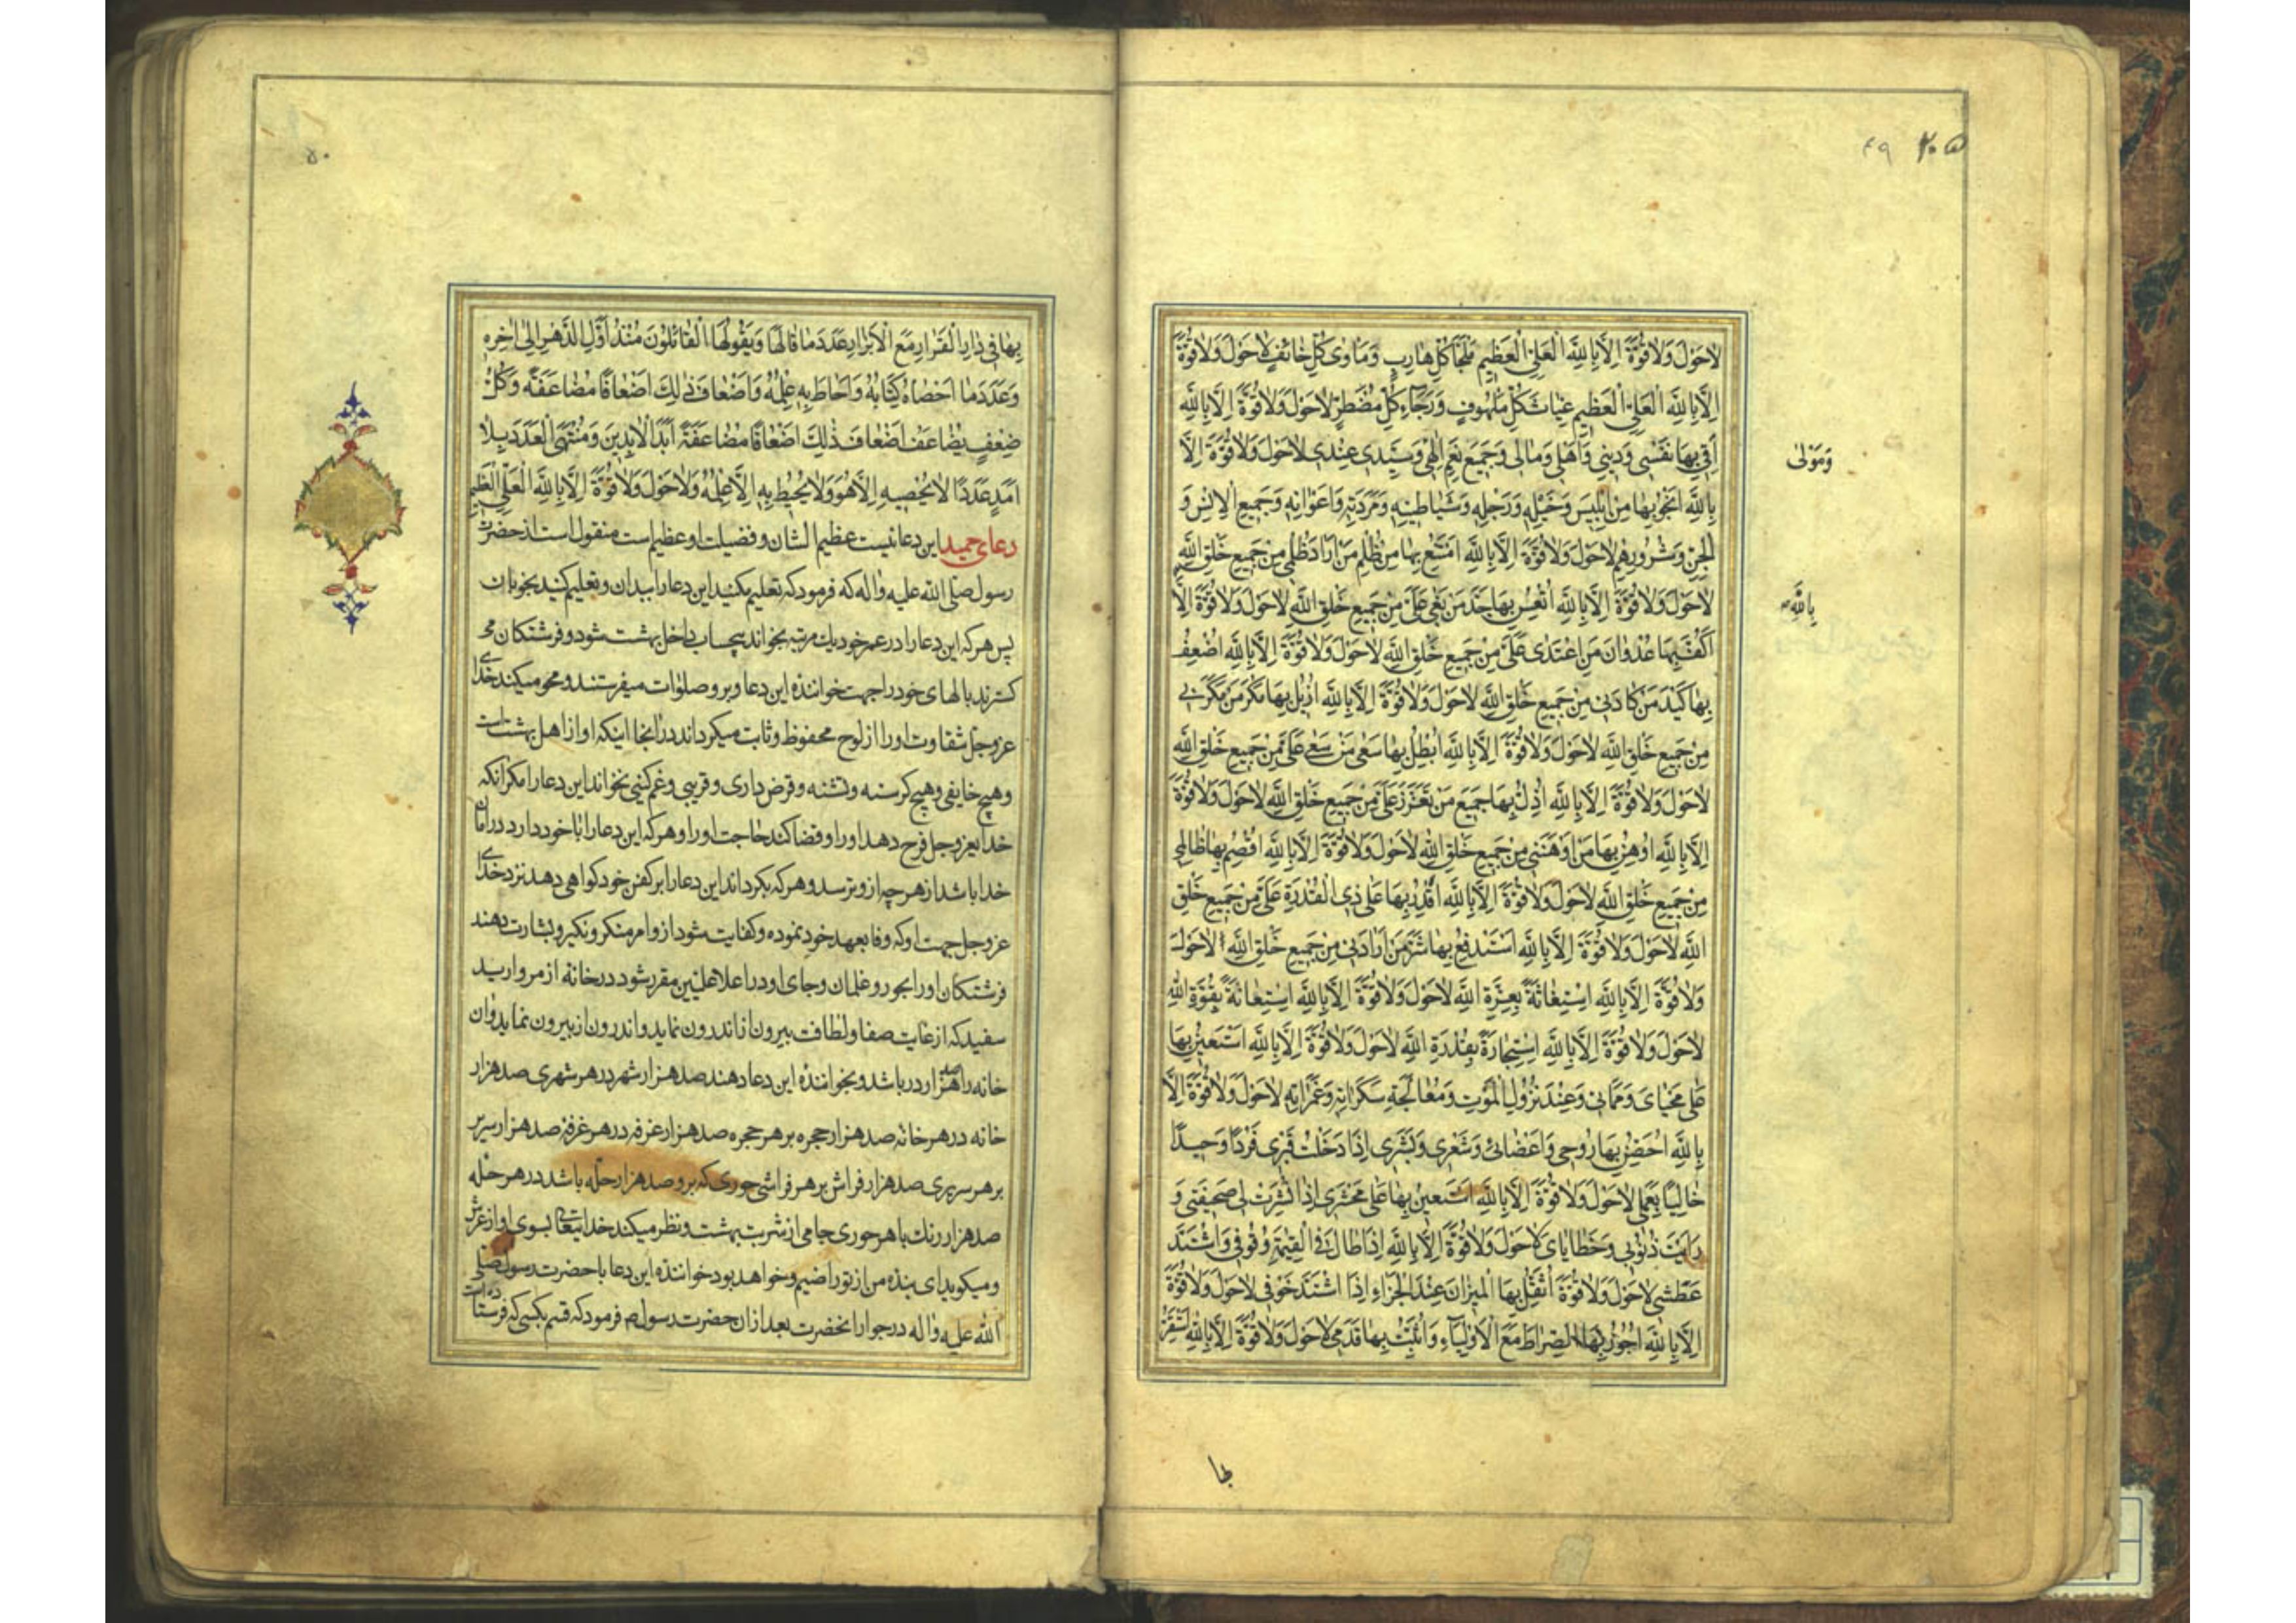 ۴۹ ۲۰۵
لاحَوْلَ وَلاقُوَّةَ اِلّا بِاللهِ الْعَلِيِّ الْعَظِيمِ مَلْجَأ كُلِّ هارِبٍ وَمَاوٰى كُلِّ خائِفٍ لاحَوْلَ وَلاقُوَّةَ
اِلّا بِاللهِ الْعَلِيِّ الْعَظِيمِ غِياثَ كُلِّ مَلْهُوفٍ وَرَجآءِ كُلِّ مُضْطَرٍّ لاحَوْلَ وَلاقُوَّةَ اِلّا بِاللهِ
اَقِي بِهَا نَفْسِي وَدِينِي وَاَهْلِي وَمالِي وَجَمِيعَ نِعَمِ اِلٰهِي وَسَيِّدِي عِنْدِي لاحَوْلَ وَلاقُوَّةَ اِلّا
وَمَوْلٰى
بِاللهِ اَنْجُو بِهَا مِنْ اِبْلِيسَ وَخَيْلِهِ وَرَجْلِهِ وَشَياطِينِهِ وَمَرَدَتِهِ وَاَعْوانِهِ وَجَمِيعِ الْاِنْسِ وَ
الْجِنِّ وَشُرُورِهِمْ لاحَوْلَ وَلاقُوَّةَ اِلّا بِاللهِ اَمْتَنِعُ بِهَا مِنْ ظُلْمِ مَنْ اَرادَ ظُلْمِي مِنْ جَمِيعِ خَلْقِ اللهِ
لاحَوْلَ وَلاقُوَّةَ اِلّا بِاللهِ اُتْعِسُ بِهَا جَدَّ مَنْ بَغٰى عَلَيَّ مِنْ جَمِيعِ خَلْقِ اللهِ لاحَوْلَ وَلاقُوَّةَ اِلّا
بِاللهِ
اَكُفُّ بِهَا عُدْوانَ مَنِ اعْتَدٰى عَلَيَّ مِنْ جَمِيعِ خَلْقِ اللهِ لاحَوْلَ وَلاقُوَّةَ اِلّا بِاللهِ اُضْعِفُ
بِهَا كَيْدَ مَنْ كادَنِي مِنْ جَمِيعِ خَلْقِ اللهِ لاحَوْلَ وَلاقُوَّةَ اِلّا بِاللهِ اُزِيلُ بِهَا مَكْرَ مَنْ مَكَرَ بِي
مِنْ جَمِيعِ خَلْقِ اللهِ لاحَوْلَ وَلاقُوَّةَ اِلّا بِاللهِ اُبْطِلُ بِهَا سَعْيَ مَنْ سَعٰى عَلَيَّ مِنْ جَمِيعِ خَلْقِ اللهِ
لاحَوْلَ وَلاقُوَّةَ اِلّا بِاللهِ اُذِلُّ بِهَا جَمِيعَ مَنْ تَعَزَّزَ عَلَيَّ مِنْ جَمِيعِ خَلْقِ اللهِ لاحَوْلَ وَلاقُوَّةَ
اِلّا بِاللهِ اُوهِنُ بِهَا مَنْ اَوْهَنَنِي مِنْ جَمِيعِ خَلْقِ اللهِ لاحَوْلَ وَلاقُوَّةَ اِلّا بِاللهِ اَقْصِمُ بِهَا ظالِمِي
مِنْ جَمِيعِ خَلْقِ اللهِ لاحَوْلَ وَلاقُوَّةَ اِلّا بِاللهِ اَقْدِرُ بِهَا عَلٰى ذِي الْقُدْرَةِ عَلَيَّ مِنْ جَمِيعِ خَلْقِ
اللهِ لاحَوْلَ وَلاقُوَّةَ اِلّا بِاللهِ اَسْتَدْفِعُ بِهَا شَرَّ مَنْ اَرادَنِي مِنْ جَمِيعِ خَلْقِ اللهِ لاحَوْلَ
وَلاقُوَّةَ اِلّا بِاللهِ اسْتِغاثَةً بِعِزَّةِ اللهِ لاحَوْلَ وَلاقُوَّةَ اِلّا بِاللهِ اسْتِعانَةً بِقُوَّةِ اللهِ
لاحَوْلَ وَلاقُوَّةَ اِلّا بِاللهِ اسْتِجارَةً بِقُدْرَةِ اللهِ لاحَوْلَ وَلاقُوَّةَ اِلّا بِاللهِ اَسْتَعِينُ بِهَا
عَلٰى مَحْيايَ وَمَماتِي وَعِنْدَ نُزُولِ الْمَوْتِ وَمُعالَجَةِ سَكَراتِهِ وَغَمَراتِهِ لاحَوْلَ وَلاقُوَّةَ اِلّا
بِاللهِ اُحَصِّنُ بِهَا رُوحِي وَاَعْضائِي وَشَعْرِي وَبَشَرِي اِذا دَخَلْتُ قَبْرِي فَرْدًا وَحِيدًا
خالِيًا بِعَمَلِي لاحَوْلَ وَلاقُوَّةَ اِلّا بِاللهِ اَسْتَعِينُ بِهَا عَلٰى مَحْشَرِي اِذا نُشِرَتْ لِي صَحِيفَتِي وَ
رَاَيْتُ ذُنُوبِي وَخَطايايَ لاحَوْلَ وَلاقُوَّةَ اِلّا بِاللهِ اِذا طالَ فِي الْقِيٰمَةِ وُقُوفِي وَاشْتَدَّ
عَطَشِي لاحَوْلَ وَلاقُوَّةَ اُثَقِّلُ بِهَا الْمِيزانَ عِنْدَ الْجَزاءِ اِذا اشْتَدَّ خَوْفِي لاحَوْلَ وَلاقُوَّةَ
اِلّا بِاللهِ اَجُوزُ بِهَا الصِّراطَ مَعَ الْاَوْلِيآءِ وَاُثَبِّتُ بِهَا قَدَمِي لاحَوْلَ وَلاقُوَّةَ اِلّا بِاللهِ
بها
۵۰
بِهَا فِي دارِ الْقَرارِ مَعَ الْاَبْرارِ عَدَدَ ما قالَهَا وَيَقُولُهَا الْقائِلُونَ مُنْذُ اَوَّلِ الدَّهْرِ اِلٰى اٰخِرِهِ
وَعَدَدَ ما اَحْصاهُ كِتابُهُ وَاَحاطَ بِهِ عِلْمُهُ وَاَضْعافَ ذٰلِكَ اَضْعافًا مُضاعَفَةً وَكُلُّ
ضِعْفٍ يُضاعَفُ اَضْعافَ ذٰلِكَ اَضْعافًا مُضاعَفَةً اَبَدَ الْاٰبِدِينَ وَمُنْتَهَى الْعَدَدِ بِلا
اَمَدٍ عَدَدًا لا يُحْصِيهِ اِلّا هُوَ وَلا يُحِيطُ بِهِ اِلّا عِلْمُهُ وَلاحَوْلَ وَلاقُوَّةَ اِلّا بِاللهِ الْعَلِيِّ الْعَظِيمِ
دعای حمید این دعائیست عظیم الشان و فضیلت او عظیم است منقول است از حضرت
رسول صلی الله علیه واله که فرمود که تعلیم مکنید این دعا را ببدان و تعلیم کنید بخوبان
پس هر که این دعا را در عمر خود یک مرتبه بخواند بیحساب داخل بهشت شود و فرشتکان می
کسترند بالهای خود را جهت خوانندهٔ این دعا و برو صلوات میفرستند و محو میکند خدای
عزوجل شقاوت او را از لوح محفوظ و ثابت میکرداند در انجا اینکه او از اهل بهشت است
و هیچ خایفی و هیچ کرسنه و تشنه و قرض داری و غریبی و غمکینی نخواند این دعا را مکر انکه
خدایعزوجل فرح دهد او را و قضا کند حاجت او را و هر که این دعا را با خود دارد در امان
خدا باشد از هر چه ازو ترسد و هر که بکرداند این دعا را بر کفن خود کواهی دهد نزد خدای
عزوجل جهت او که وفا بعهد خود نموده و کفایت شود ازو امر منکر و نکیر و بشارت دهند
فرشتکان او را بحور و غلمان و جای او در اعلا علیین مقرر شود در خانهٔ از مروارید
سفید که از غایت صفا و لطافت بیرون از اندرون نماید و اندرون از بیرون نماید و ان
خانه را صد هزار در باشد و بخوانندهٔ این دعا دهند صد هزار شهر در هر شهری صد هزار
خانه در هر خانه صد هزار حجره بر هر حجره صد هزار غرفه در هر غرفه صد هزار سریر
بر هر سریری صد هزار فراش بر هر فراشی حوری که برو صد هزار حله باشد در هر حله
صد هزار رنك با هر حوری جامی از شربت بهشت و نظر میکند خدایتعالی بسوی او از عرش
و میکوید ای بنده من از تو راضیم و خواهد بود خوانندهٔ این دعا با حضرت رسول صلی
الله علیه واله در جوار انحضرت بعد از ان حضرت رسول ص فرمود که قسم بکسی که فرستاده است